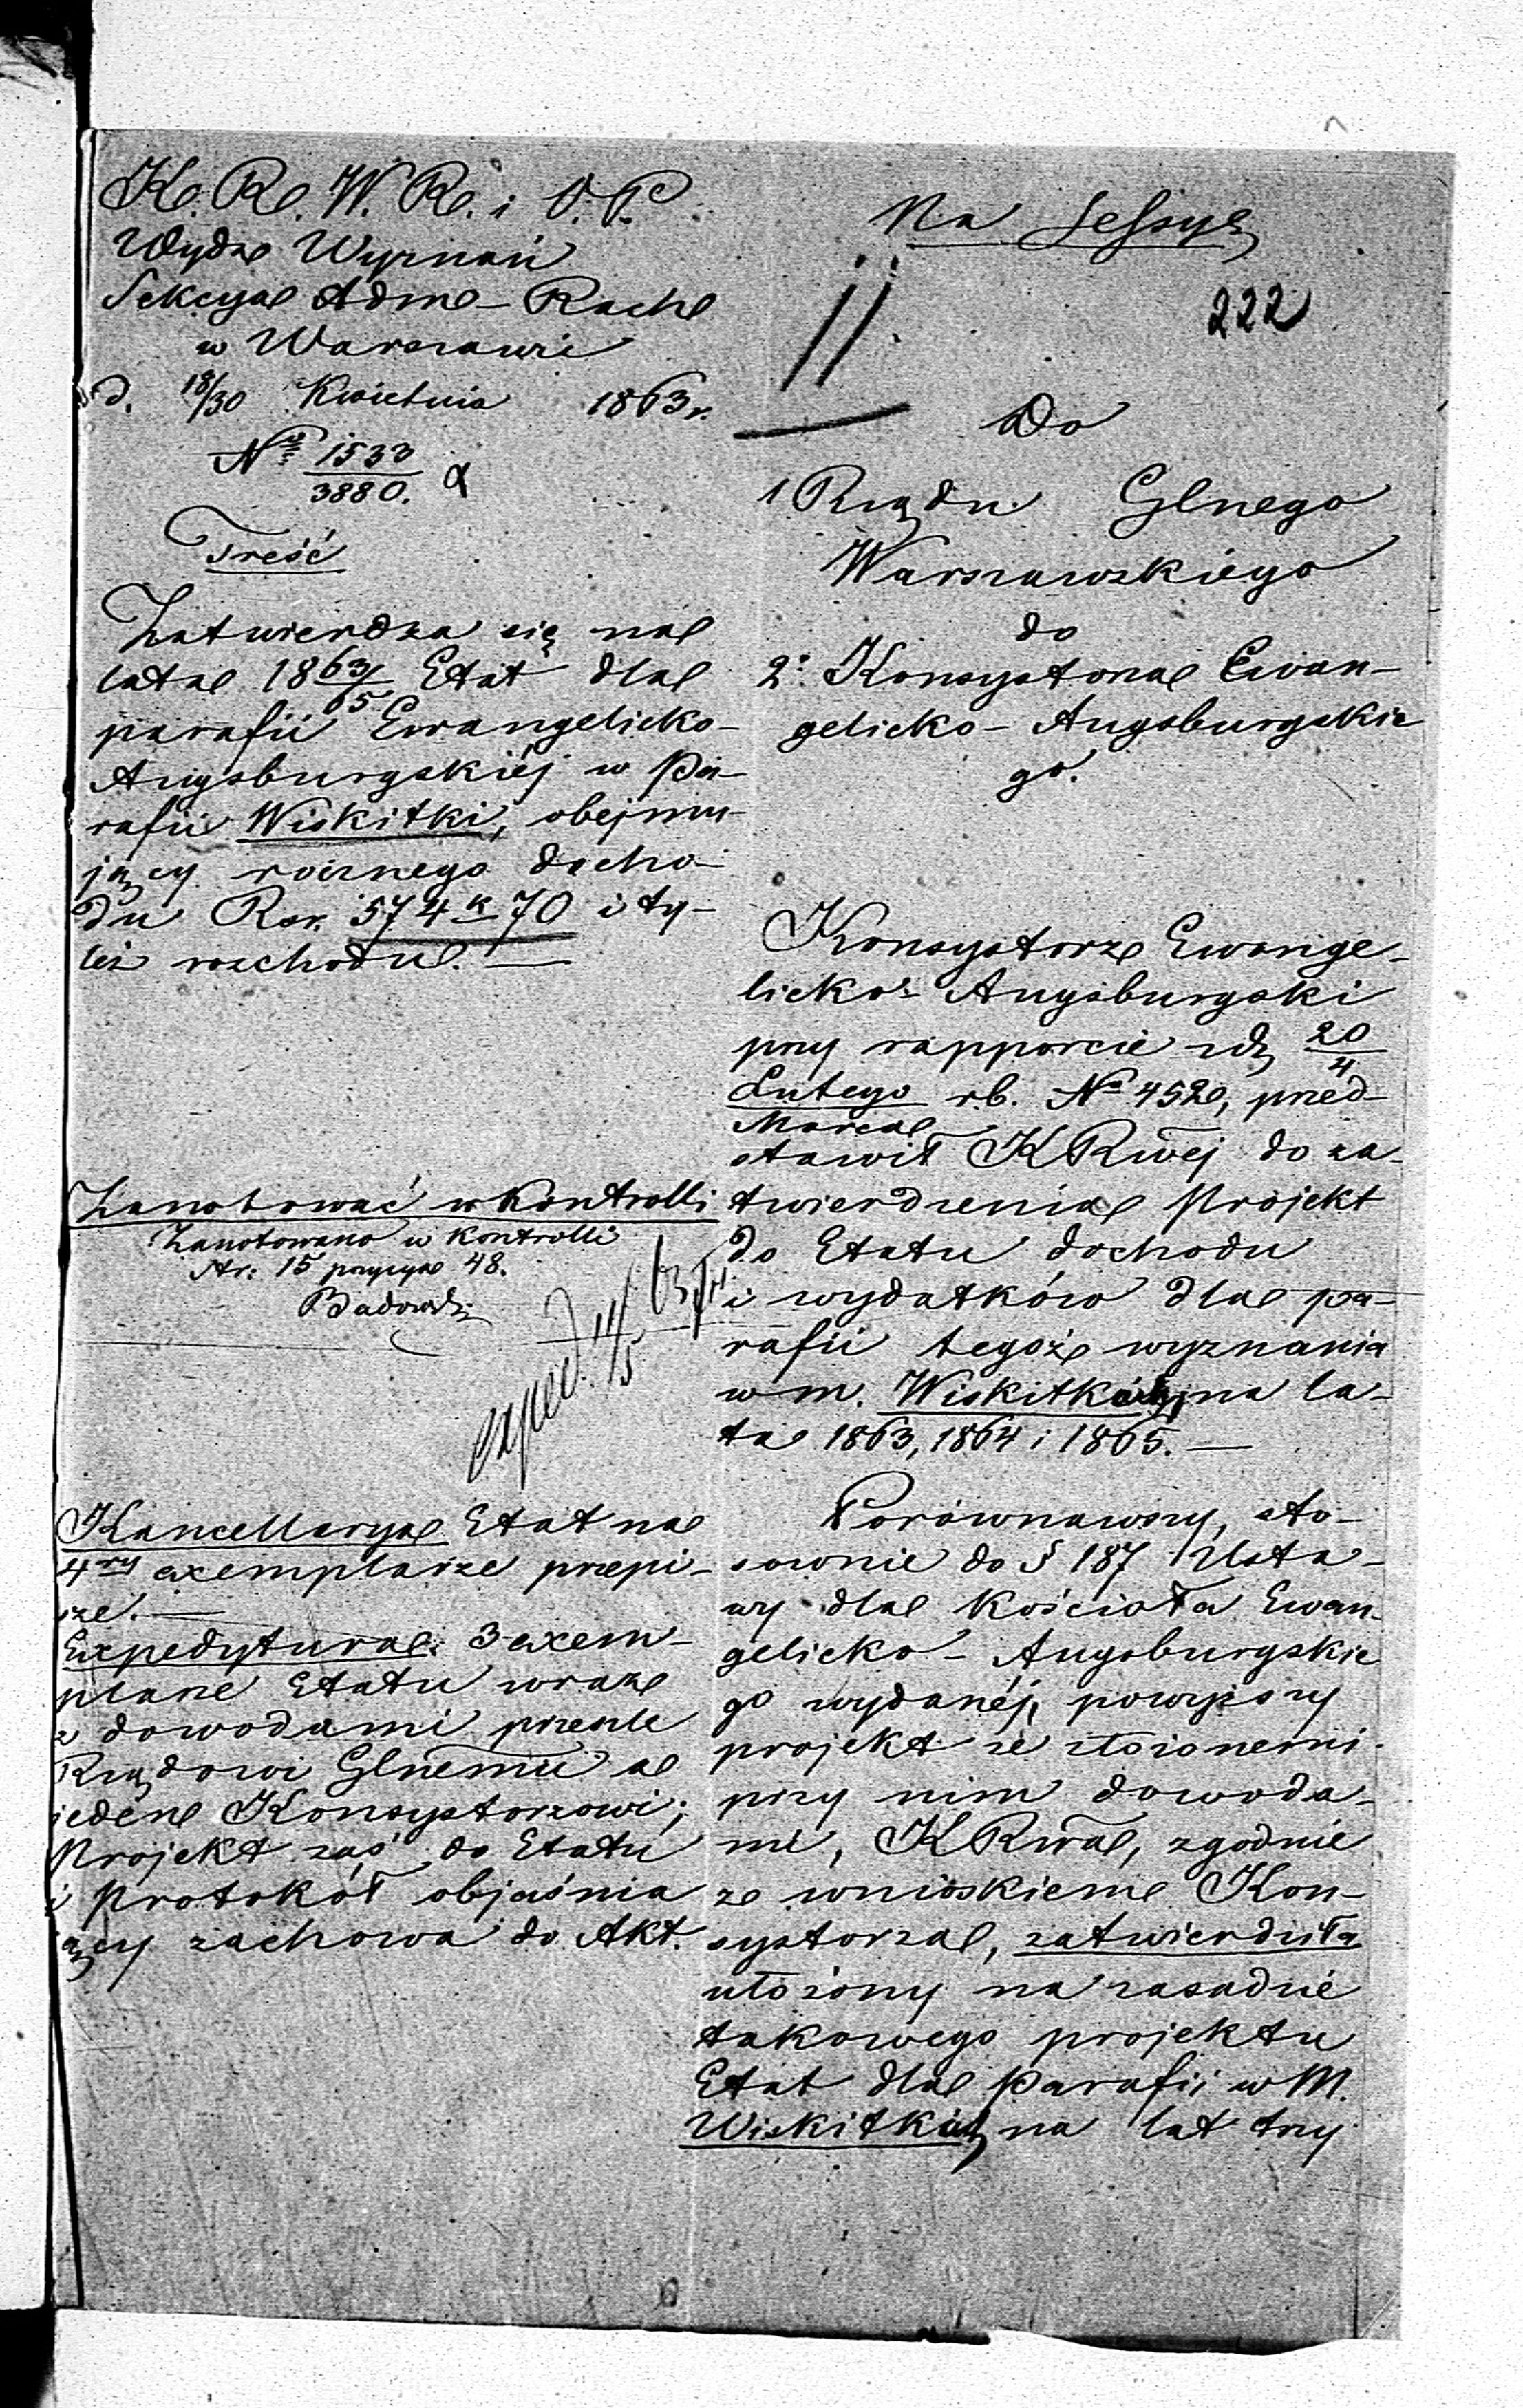 K. R. W. R. i O. P.
Wydz Wyznań
Sekcya Adm - Rach
w Warszawie
d. 18/30 Kwietnia 1863 r.
No 1533
3880.
Treść
Zatwierdza się na
lata 1863/65 Etat dla
parafii Ewangelicko-
Augsburgskiéj w Pa-
rafii Wiskitki, obejmu-
jący rocznego docho-
du Rsr. 574 k 70 i ty-
leż rozchodu. —
Zanotować w Kontrolli
Zanotowano w Kontrolli
str: 15 pozycya 48.
Badowski
exped. 14/5 63
Kancellarya Etat na
4ry exemplarze przepi-
sze. —
Expedytura: 3 exem-
plarze Etatu wraz
z dowodami prześle
Rządowi Glnemu a
jeden Konsystorzowi;
Projekt zaś do Etatu
i Protokół objaśnia
jący zachowa do Akt.
Na Sessyę
222
Do
1 Rządu Glnego
Warszawskiego
do
2o Konsystorza Ewan-
gelicko - Augsburgskie
go.
Konsystorz Ewange-
licko - Augsburgski
przy rapporcie z d. 20/4
Lutego r.b. No 4520, przed-
Marca
stawił KRwej do za-
twierdzenia Projekt
do Etatu dochodu
i wydatków dla pa-
rafii tegoż wyznania
w m. Wiskitkach, na la-
ta 1863, 1864 i 1865. —
Porównawszy, sto-
sownie do § 187 Usta-
wy dla Kościoła Ewan-
gelicko - Augsburgskie
go wydanéj, powyższy
projekt ze złożonemi
przy nim dowoda-
mi, KRwa, zgodnie
z wnioskiem Kon-
systorza, zatwierdziła
ułożony na zasadzie
takowego projektu
Etat dla Parafii w M.
Wiskitkach na lat trzy